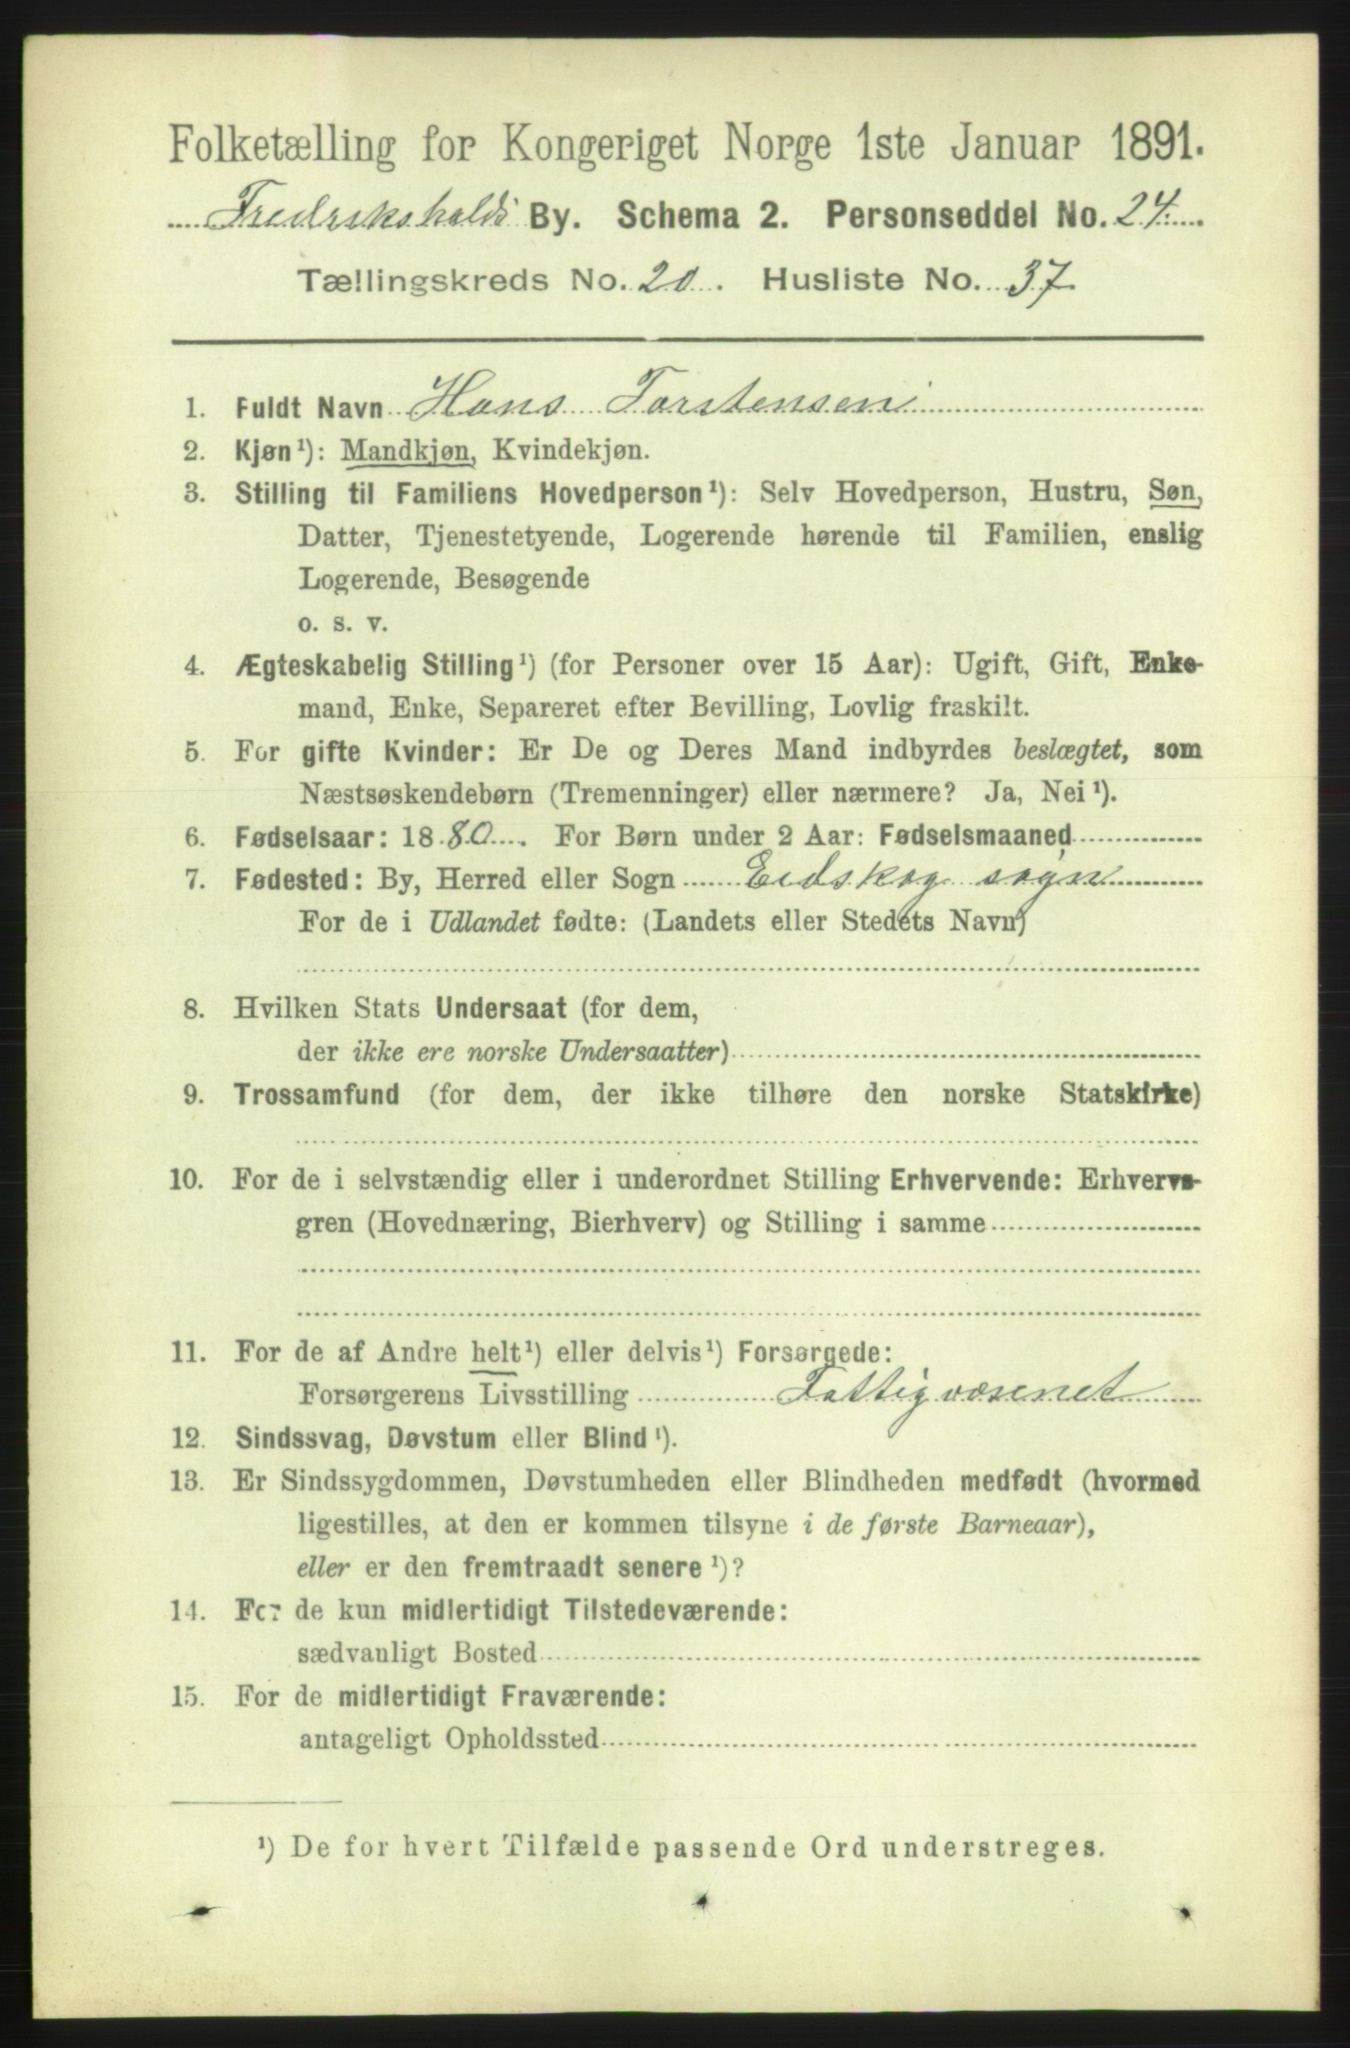 Folketælling for Kongeriget Norge 1ste Januar 1891.
Fredrikshalds By. Schema 2. Personseddel No. 24.
Tællingskreds No. 20. Husliste No. 37.
1. Fuldt Navn Hans Torstensen
2. Kjøn¹): Mandkjøn, Kvindekjøn.
3. Stilling til Familiens Hovedperson¹): Selv Hovedperson, Hustru, Søn,
Datter, Tjenestetyende, Logerende hørende til Familien, enslig
Logerende, Besøgende
o. s. v.
4. Ægteskabelig Stilling¹) (for Personer over 15 Aar): Ugift, Gift, Enke-
mand, Enke, Separeret efter Bevilling, Lovlig fraskilt.
5. For gifte Kvinder: Er De og Deres Mand indbyrdes beslægtet, som
Næstsøskendebørn (Tremenninger) eller nærmere? Ja, Nei¹).
6. Fødselsaar: 1880. For Børn under 2 Aar: Fødselsmaaned
7. Fødested: By, Herred eller Sogn Eidskog sogn
For de i Udlandet fødte: (Landets eller Stedets Navn)
8. Hvilken Stats Undersaat (for dem,
der ikke ere norske Undersaatter)
9. Trossamfund (for dem, der ikke tilhøre den norske Statskirke)
10. For de i selvstændig eller i underordnet Stilling Erhvervende: Erhvervs-
gren (Hovednæring, Bierhverv) og Stilling i samme
11. For de af Andre helt¹) eller delvis¹) Forsørgede:
Forsørgerens Livsstilling Fattigvæsenet
12. Sindssvag, Døvstum eller Blind¹).
13. Er Sindssygdommen, Døvstumheden eller Blindheden medfødt (hvormed
ligestilles, at den er kommen tilsyne i de første Barneaar),
eller er den fremtraadt senere¹)?
14. For de kun midlertidigt Tilstedeværende:
sædvanligt Bosted
15. For de midlertidigt Fraværende:
antageligt Opholdssted
¹) De for hvert Tilfælde passende Ord understreges.